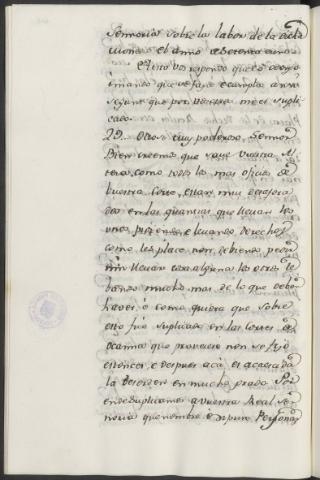 Sennoria sobre la labor de la dicha
moneda el anno de setenta e uno
A esto vos respondo que es cosa yo
mando que se faga e cumpla assi
segunt que por vosotros me es supli
cado.
29. Otrosi muy poderoso Sennor
Bien creemos que save vuestra Al
teza como todos los mas oficios de
vuestra Corte, estan muy desordena
dos en las quantias que llevan los
unos pidiendo e levando derechos
como les place non debiendo pedir
nin llevar cosa alguna los otros le
bando mucho mas de lo que deben
haver, e como quiera que sobre
esto fue suplicado en las cortes de
Ocanna que proveiese non se fizo
estonces e despues acá es acrecentada
la desorden en mucho grado Por
ende suplicamos a vuestra Real Sen
noria que nombre e dipute Personas